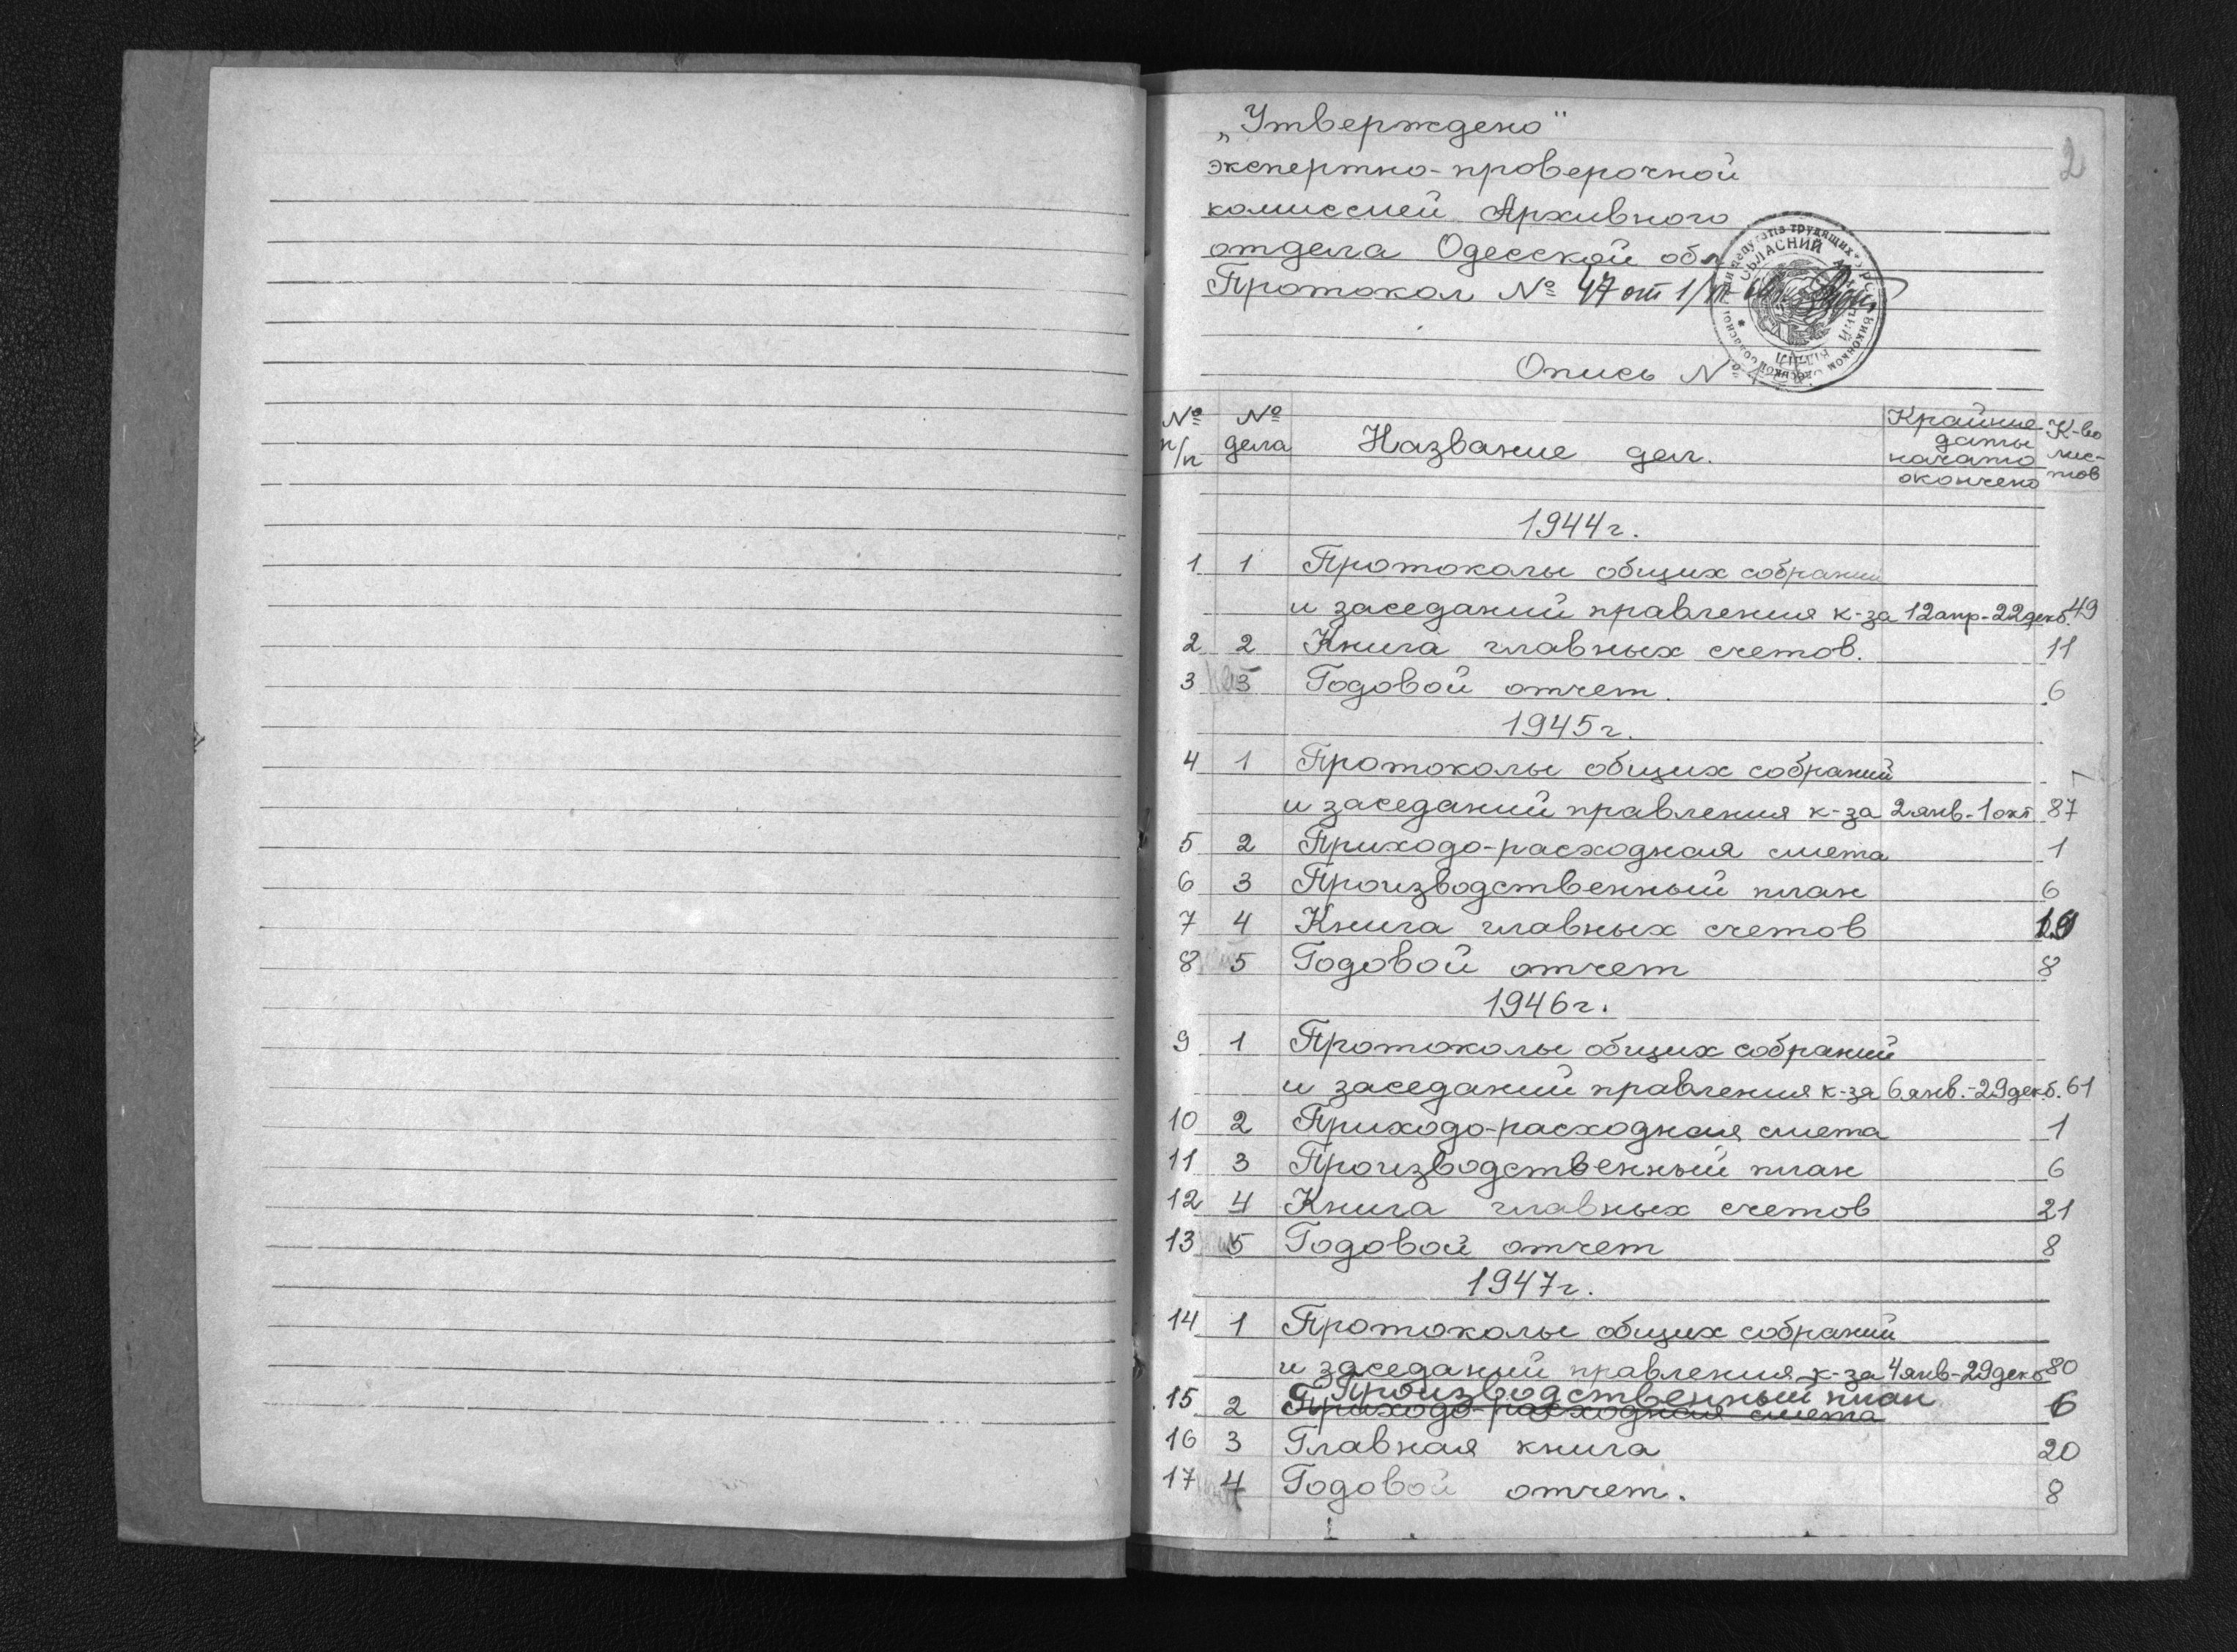 2
„Утверждено"
экспертно-проверочной
комиссией Архивного
отдела Одесской обл
Протокол № 47 от 1/
ОБЛАСНИЙ
Опись №
№ п/п № дела Название дел. Крайние даты начато окончено К-во листов
1944г.
1 1 Протоколы общих собраний
и заседаний правления к-за 12апр-22декб. 49
2 2 Книга главных счетов. 11
3 3 Годовой отчет. 6
1945г.
4 1 Протоколы общих собраний
и заседаний правления к-за 2янв-1окт 87
5 2 Приходо-расходная смета 1
6 3 Производственный план 6
7 4 Книга главных счетов 19
8 5 Годовой отчет 8
1946г.
9 1 Протоколы общих собраний
и заседаний правления к-за 6янв.-29декб. 61
10 2 Приходо-расходная смета 1
11 3 Производственный план 6
12 4 Книга главных счетов 21
13 5 Годовой отчет 8
1947г.
14 1 Протоколы общих собраний
и заседаний правления к-за 4янв-29декб 80
Производственный план
15 2 Приходо-расходная смета 6
16 3 Главная книга 20
17 4 Годовой отчет. 8